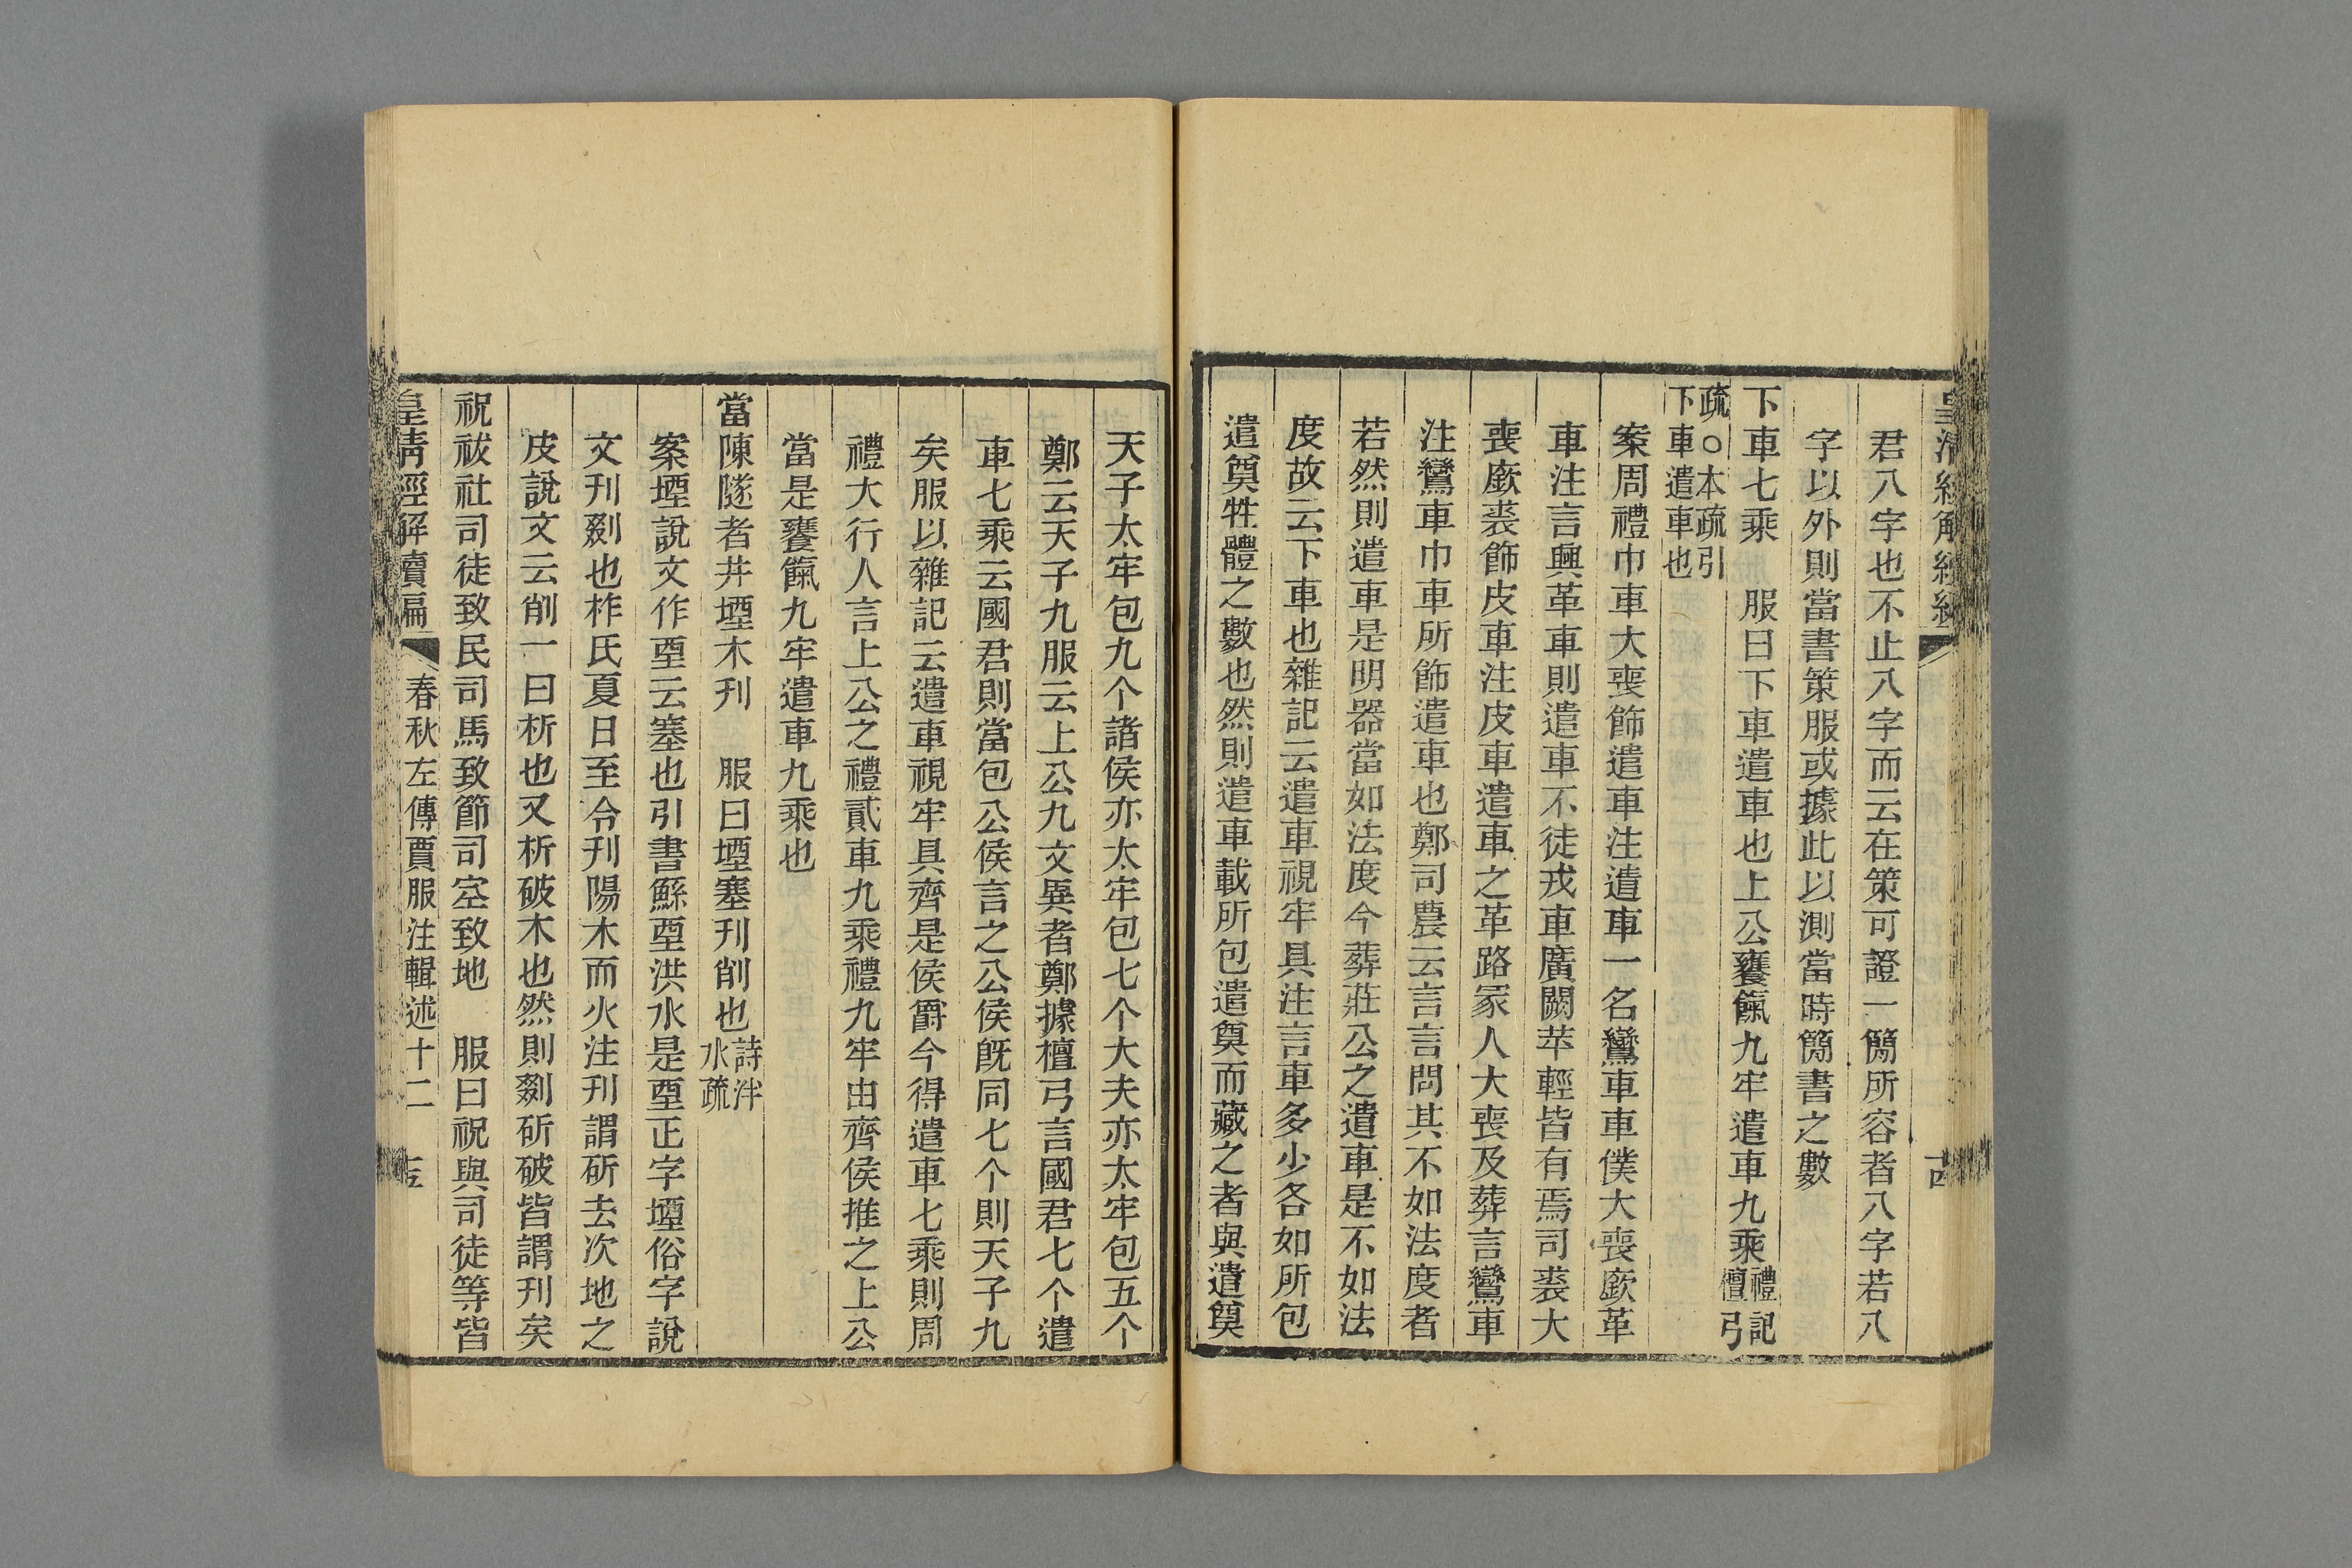 君八字也不止八字而云在策可證一簡所容者八字若八
字以外則當書策服或據此以測當時簡書之數
下車七乘　服曰下車遣車也上公饔餼九牢遣車九乘禮記
檀弓
疏○本疏引
下車遣車也
案周禮巾車大喪飾遣車注遣車一名鸞車車僕大喪廞革
車注言興革車則遣車不徒戎車廣闕苹輕皆有焉司裘大
喪廞裘飾皮車注皮車遣車之革路冢人大喪及葬言鸞車
注鸞車巾車所飾遣車也鄭司農云言言問其不如法度者
若然則遣車是明器當如法度今葬莊公之遣車是不如法
度故云下車也雜記云遣車視牢具注言車多少各如所包
遣奠牲體之數也然則遣車載所包遣奠而藏之者與遣奠
天子太牢包九个諸侯亦太牢包七个大夫亦太牢包五个
鄭云天子九服云上公九文異者鄭據檀弓言國君七个遣
車七乘云國君則當包公侯言之公侯旣同七个則天子九
矣服以雜記云遣車視牢具齊是侯爵今得遣車七乘則周
禮大行人言上公之禮貳車九乘禮九牢由齊侯推之上公
當是饔餼九牢遣車九乘也
當陳隧者井堙木刊　服曰堙塞刊削也詩泮
水疏
案堙說文作垔云塞也引書鯀垔洪水是垔正字堙俗字說
文刊剟也柞氏夏日至令刊陽木而火注刊謂斫去次地之
皮說文云削一曰析也又析破木也然則剟斫破皆謂刊矣
祝祓社司徒致民司馬致節司空致地　服曰祝與司徒等皆
皇淸經解續編　春秋左傳賈服注輯述十二